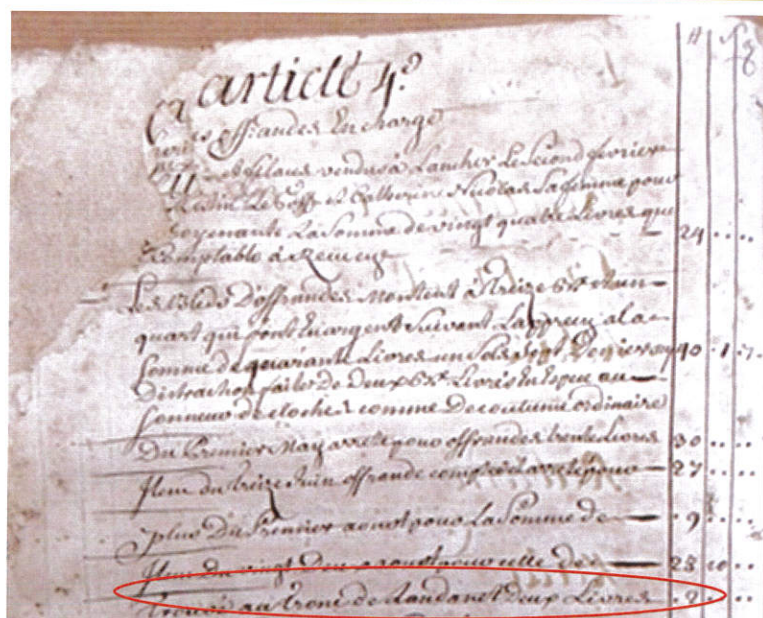 article 4.e
offrandes En charge
et filace vendus à Lancher Le Second fevrier
Le Goff et Catherine Nicolas Sa femme pour
moyenante La Somme de vingt quatre Livres que 24
Comptable à
Les bleds D'offrandes Montent à treize et un
quart qui font En argent Suivant a la
Somme de quarante Livres un Sol Sept Deniers 40 . 1 . 7 .
Distraction faite de Deux Livrés En Espece au
Sonneur de cloches comme De coutume ordinaire
Du Premier May arreté pour offrandes trente Livres 30
Item du treize Juin offrande comptée et arretée pour 27
plus Du Premier aoust pour La Somme de 9
Item Du vingt Deux aoust pour cette de 28 10
Trouvé au tronc de Landanet deux Livres 2